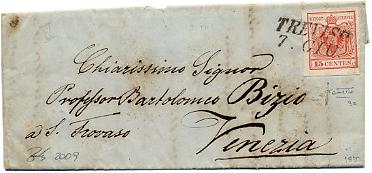 TREVISO
7. GIU
15 CENTES.
Chiarissimo Signor
Professor Bartolomeo Bizio
a S. Trovaso
Venezia
2009